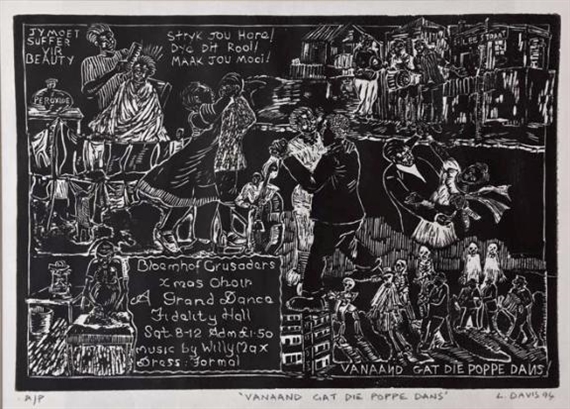 JY MOET
SUFFER
VIR
BEAUTY
Stryk Jou Hare!
Dye Dit Rooi!
Maak Jou Mooi!
PEROXIDE
Bloemhof Crusaders
Xmas Choir
A Grand Dance
Fidelity Hall
Sat 8-12 Adm £1.50
music by Willy Max
Dress: Formal
VANAAND GAT DIE POPPE DANS!
A/P
'VANAAND GAT DIE POPPE DANS'
L. DAVIS 94